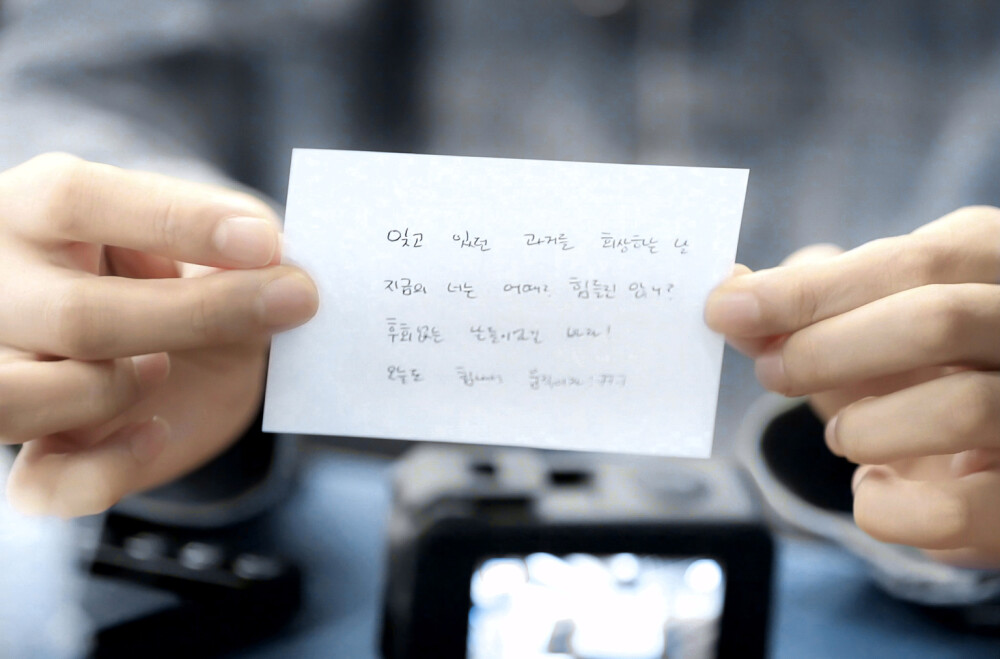 잊고 있던 과거를 회상하는 날
지금의 너는 어때? 힘들진 않니?
후회없는 날들이었길 바라!
오늘도 힘내서